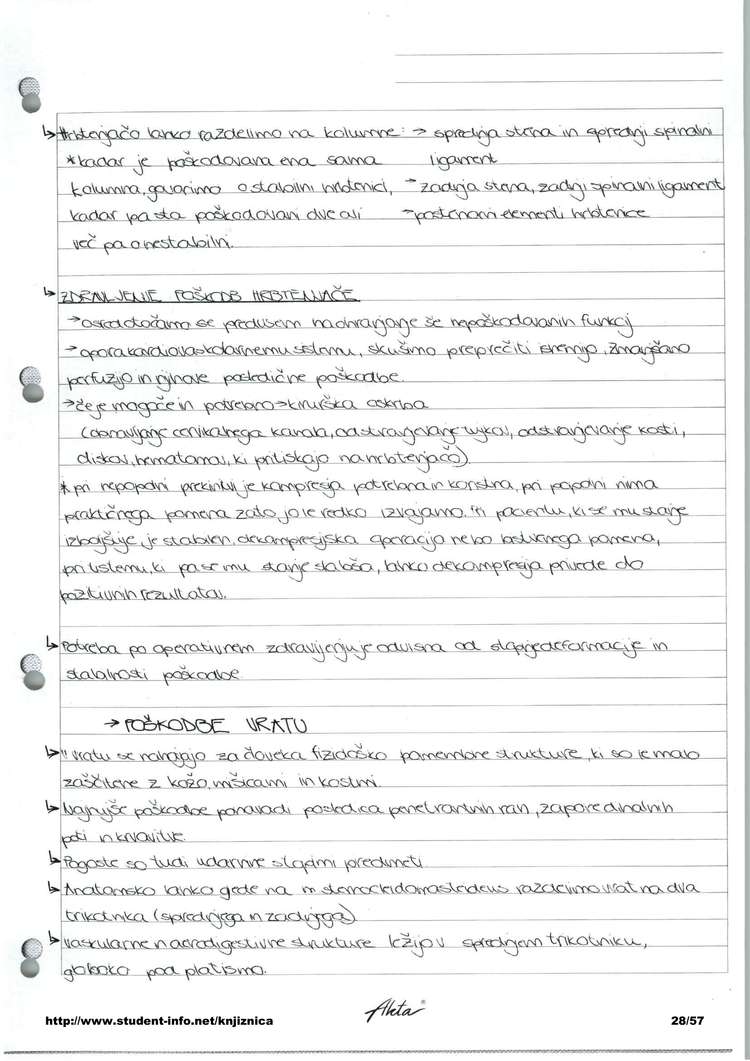 ↳ Hrbtenjačo lahko razdelimo na kolumne: → sprednja stena in sprednji spinalni
* kadar je poškodovana ena sama ligament
kolumna, govorimo o stabilni hrbtenici, → zadnja stena, zadnji spinalni ligament
kadar pa sta poškodovani dve ali → posteriorni elementi hrbtenice
več pa o nestabilni.
↳ ZDRAVLJENJE POŠKODB HRBTENJAČE
→ osredotočamo se predvsem na ohranjanje še nepoškodovanih funkcij
→ opora kardiovaskularnemu sistemu, skušimo preprečiti ishemijo, zmanjšano
perfuzijo in njihove posledične poškodbe.
→ če je mogoče in potrebno → kirurška oskrba
(obnavljanje cervikalnega kanala, odstranjevanje tujkov, odstranjevanje kosti,
diskov, hematomov, ki pritiskajo na hrbtenjačo).
* pri nepopolni prekinitvi je kompresija potrebna in koristna, pri popolni nima
praktičnega pomena zato jo le redko izvajamo. Pri pacientu, ki se mu stanje
izboljšuje, je stabilen, dekompresijska operacija ne bo bistvenega pomena,
pri tistemu, ki pa se mu stanje slabša, lahko dekompresija privede do
pozitivnih rezultatov.
↳ Potreba po operativnem zdravljenju je odvisna od stopnje deformacije in
stabilnosti poškodbe
→ POŠKODBE VRATU
↳ V vratu se nahajajo za človeka fiziološko pomembne strukture, ki so le malo
zaščitene z kožo, mišicami in kostmi.
↳ Najnujše poškodbe ponavadi posledica penetrantnih ran, zapore dihalnih
poti in krvavitve.
↳ Pogoste so tudi udarnine s topimi predmeti.
↳ Anatomsko lahko glede na m. sternocleidomastoideus razdelimo vrat na dva
trikotnika (sprednjega in zadnjega)
↳ Vaskularne in aerodigestivne strukture ležijo v sprednjem trikotniku,
globoko pod platismo.
Ahta®
http://www.student-info.net/knjiznica 28/57